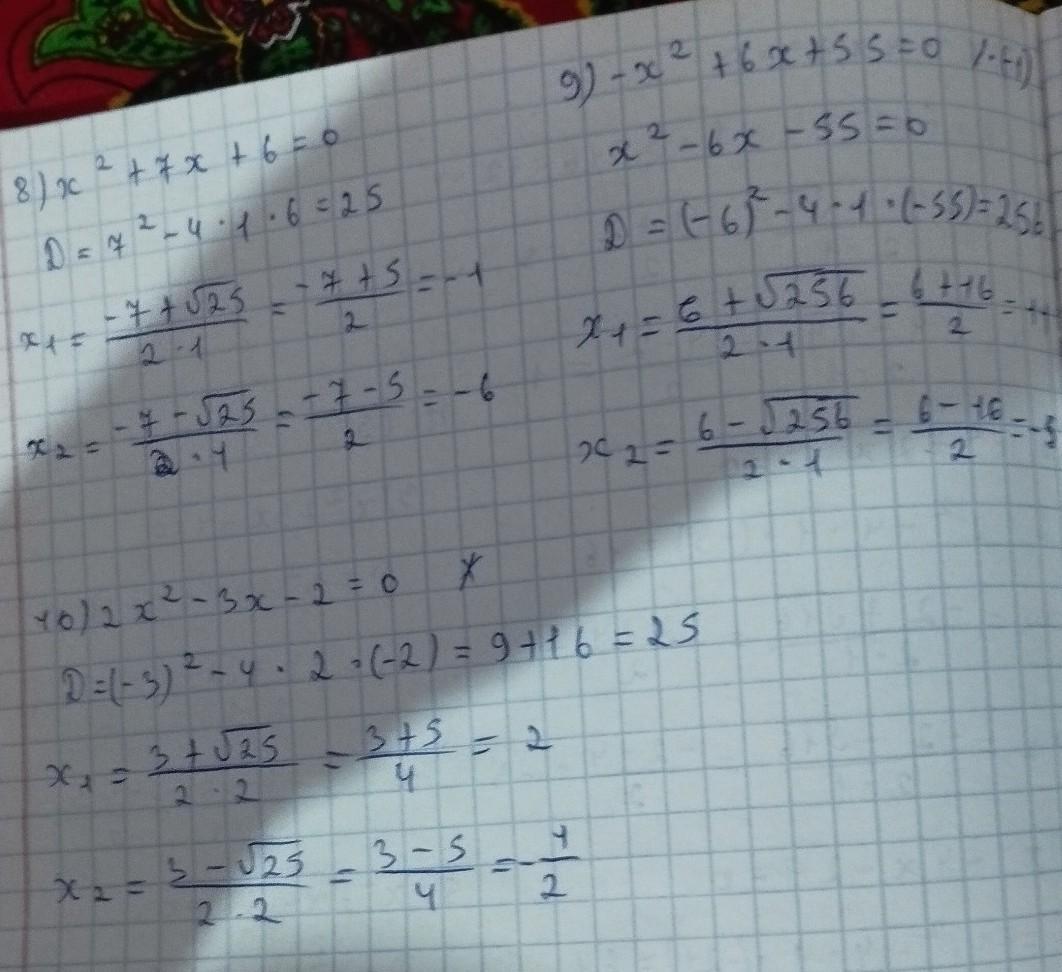 8) x² + 7x + 6 = 0
D = 7² - 4 · 1 · 6 = 25
x₁ = (-7 + √25)/(2 · 1) = (-7 + 5)/2 = -1
x₂ = (-7 - √25)/(2 · 1) = (-7 - 5)/2 = -6
9) -x² + 6x + 55 = 0 / · (-1)
x² - 6x - 55 = 0
D = (-6)² - 4 · 1 · (-55) = 256
x₁ = (6 + √256)/(2 · 1) = (6 + 16)/2 = 11
x₂ = (6 - √256)/(2 · 1) = (6 - 16)/2 = -5
10) 2x² - 3x - 2 = 0
D = (-3)² - 4 · 2 · (-2) = 9 + 16 = 25
x₁ = (3 + √25)/(2 · 2) = (3 + 5)/4 = 2
x₂ = (3 - √25)/(2 · 2) = (3 - 5)/4 = -1/2